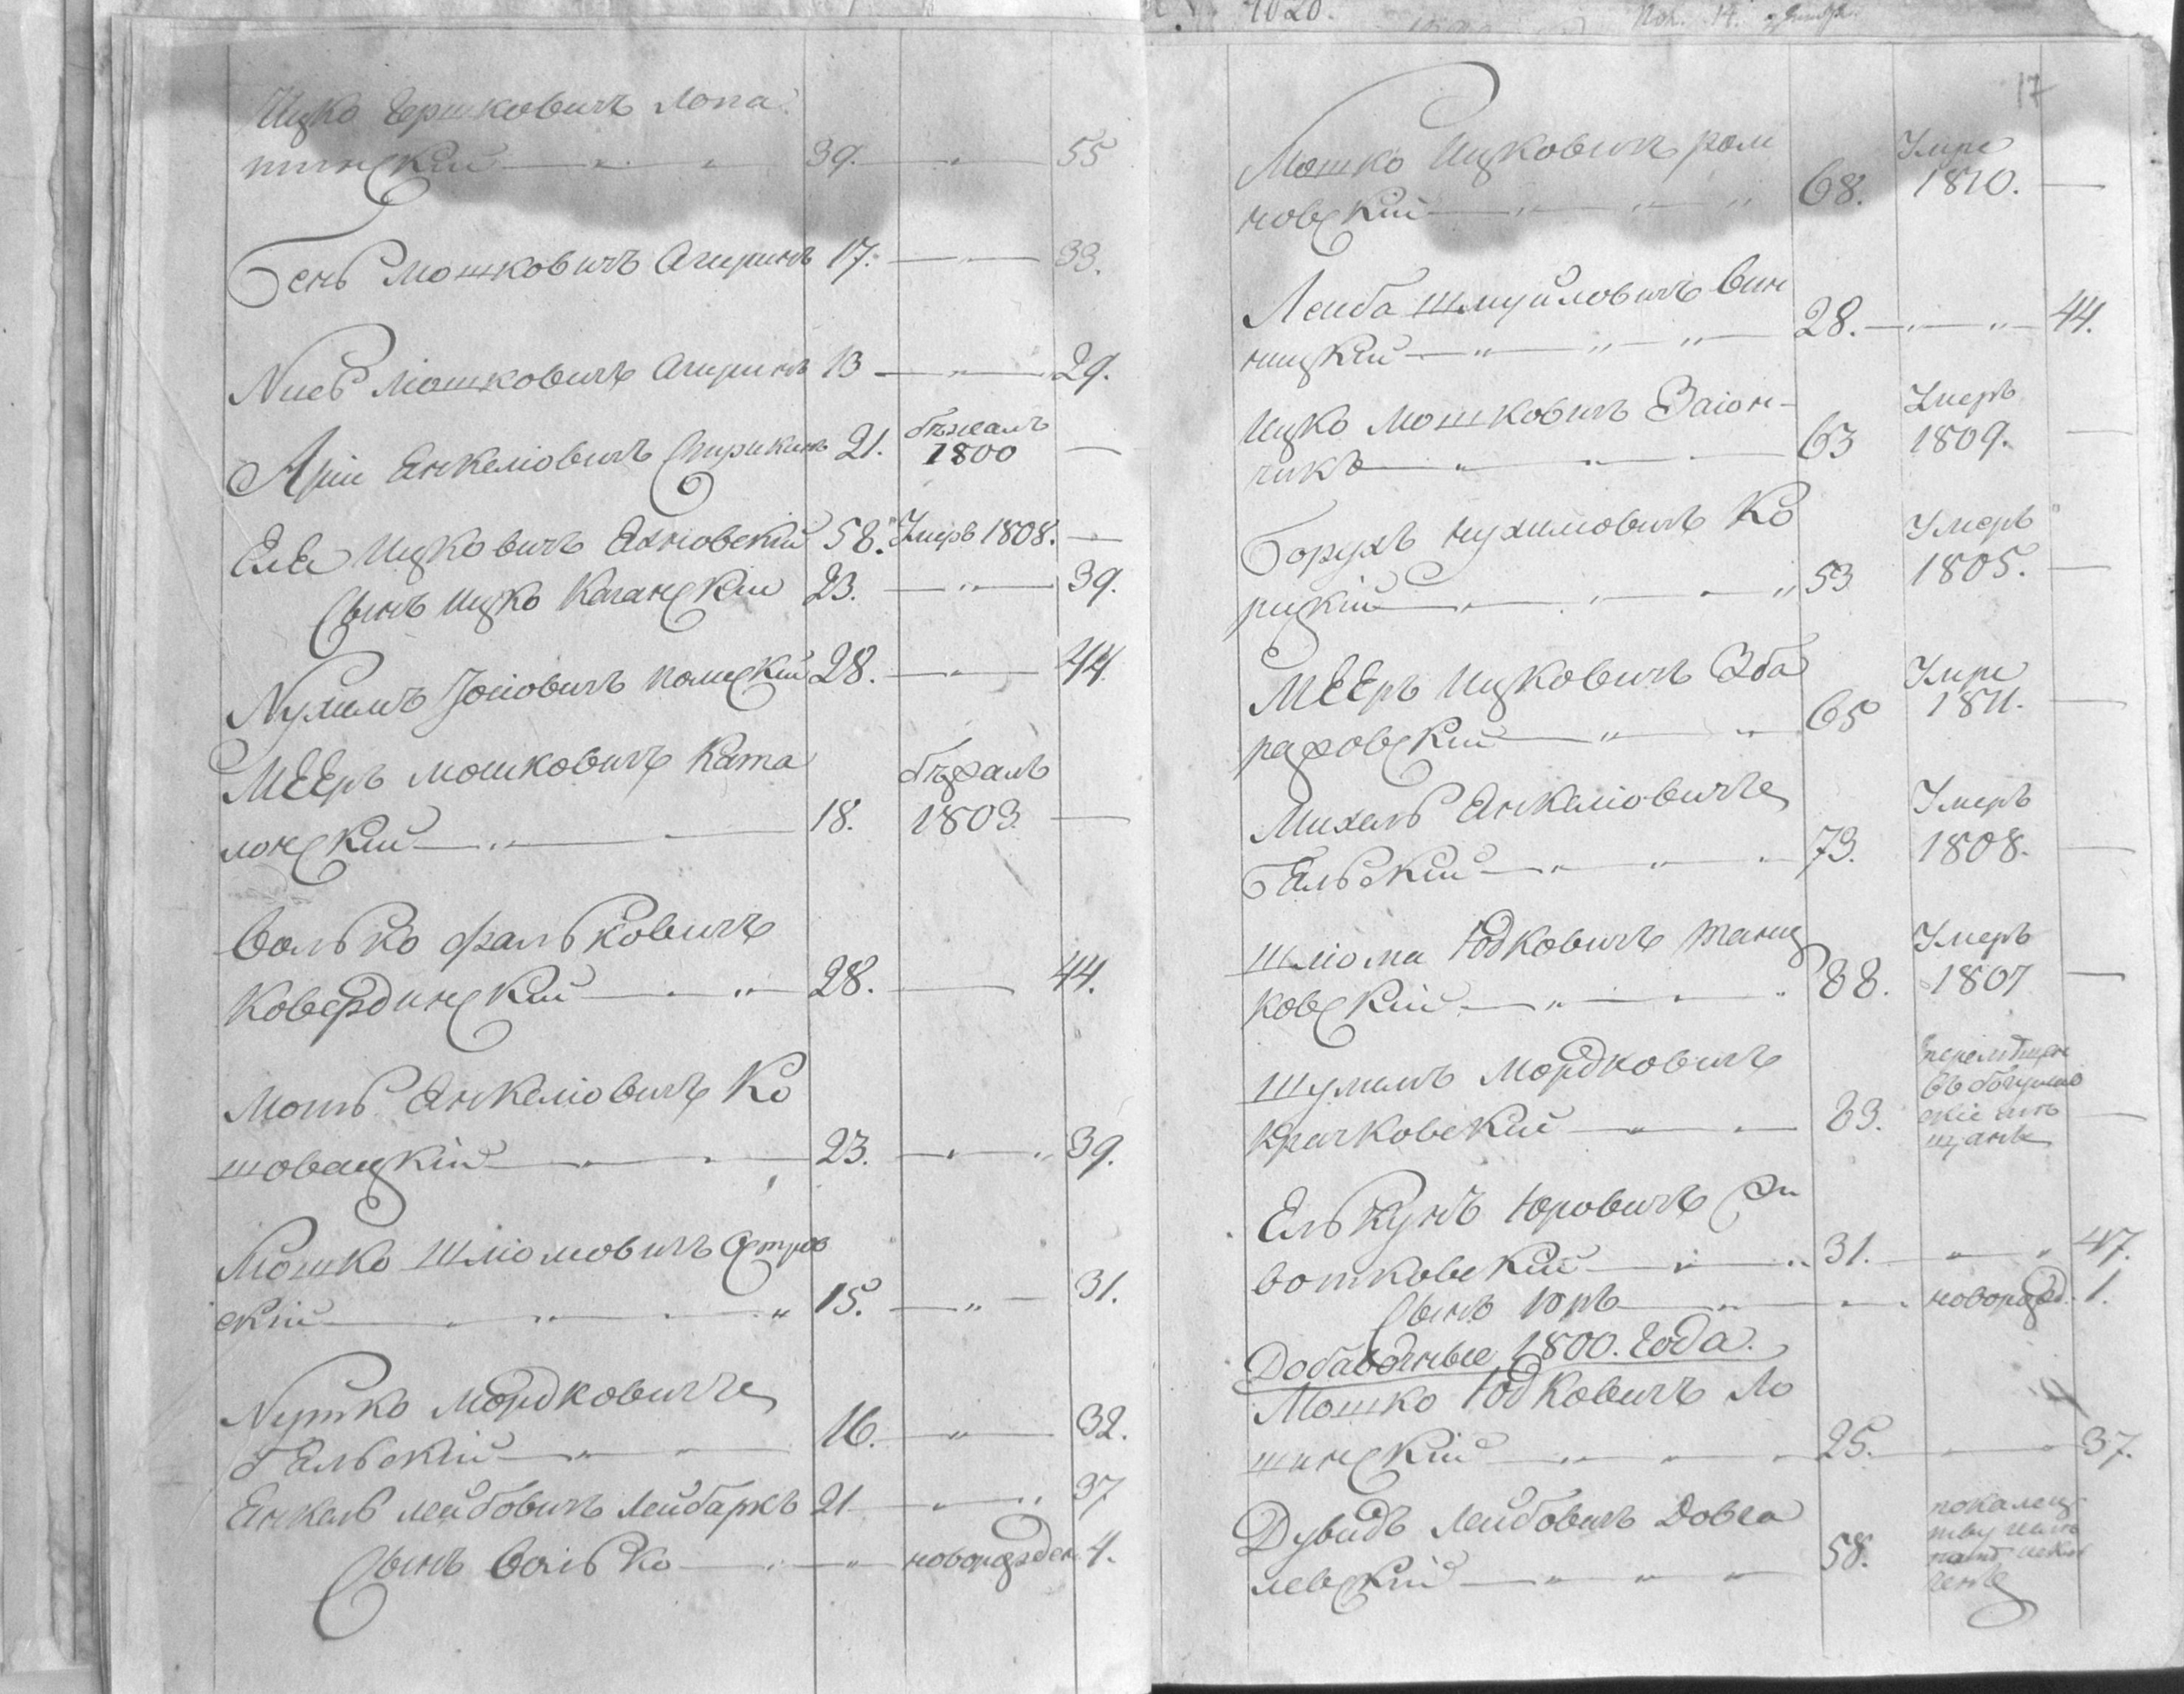 Ицко Гершковичъ Лопа
тинскій 39. 55
Бень Мошковичъ 17. 33.
Мошковичъ 13 29.
Арій Янкеліовичъ 21. бѣжалъ 1800
Еля Ицковичъ Яхновскій 58. Умеръ 1808.
Сынъ Ицко Каганскій 23. 39.
Нухимъ Іосіовичъ 28. 44.
Мееръ Мошковичъ Ката
лонскій 18. бѣжалъ 1803.
Волько Фальковичъ
Ковердинскій 28. 44.
Янкеліовичъ Ко
шовацкій 23. 39.
Мошко Шліомовичъ Остров
скій 15. 31.
Нутко Мордковичъ
Бельскій 16. 32.
Янкель Лейбовичъ Лейбаркъ 21 37
Сынъ Волько новорожден. 4.
1820.
17
Мошко Ицковичъ Ром
новскій 68. Умре 1810.
Лейба Шмуйловичъ Вин
ницкій 28. 44.
Ицко Мошковичъ Заіон-
чикъ 63 Умеръ 1809.
Борухъ Нухимовичъ Ко
рицкій 53 Умеръ 1805.
Мееръ Ицковичъ Зба
раховскій 65 Умре 1811.
Михель Янкеліовичъ
Бельскій 73. Умеръ 1808.
Шліома Юдковичъ
ковскій 88. Умеръ 1807
Мордковичъ
Крачковскій 83.
Елькунъ Юровичъ
вотковскій 31. 47.
Сынъ Юръ новорожд. 1.
Добавочные 1800. Года.
Мошко Юдковичъ Ло
шинскій 25. 37.
Дувидъ Лейбовичъ Довга
левскій 58.